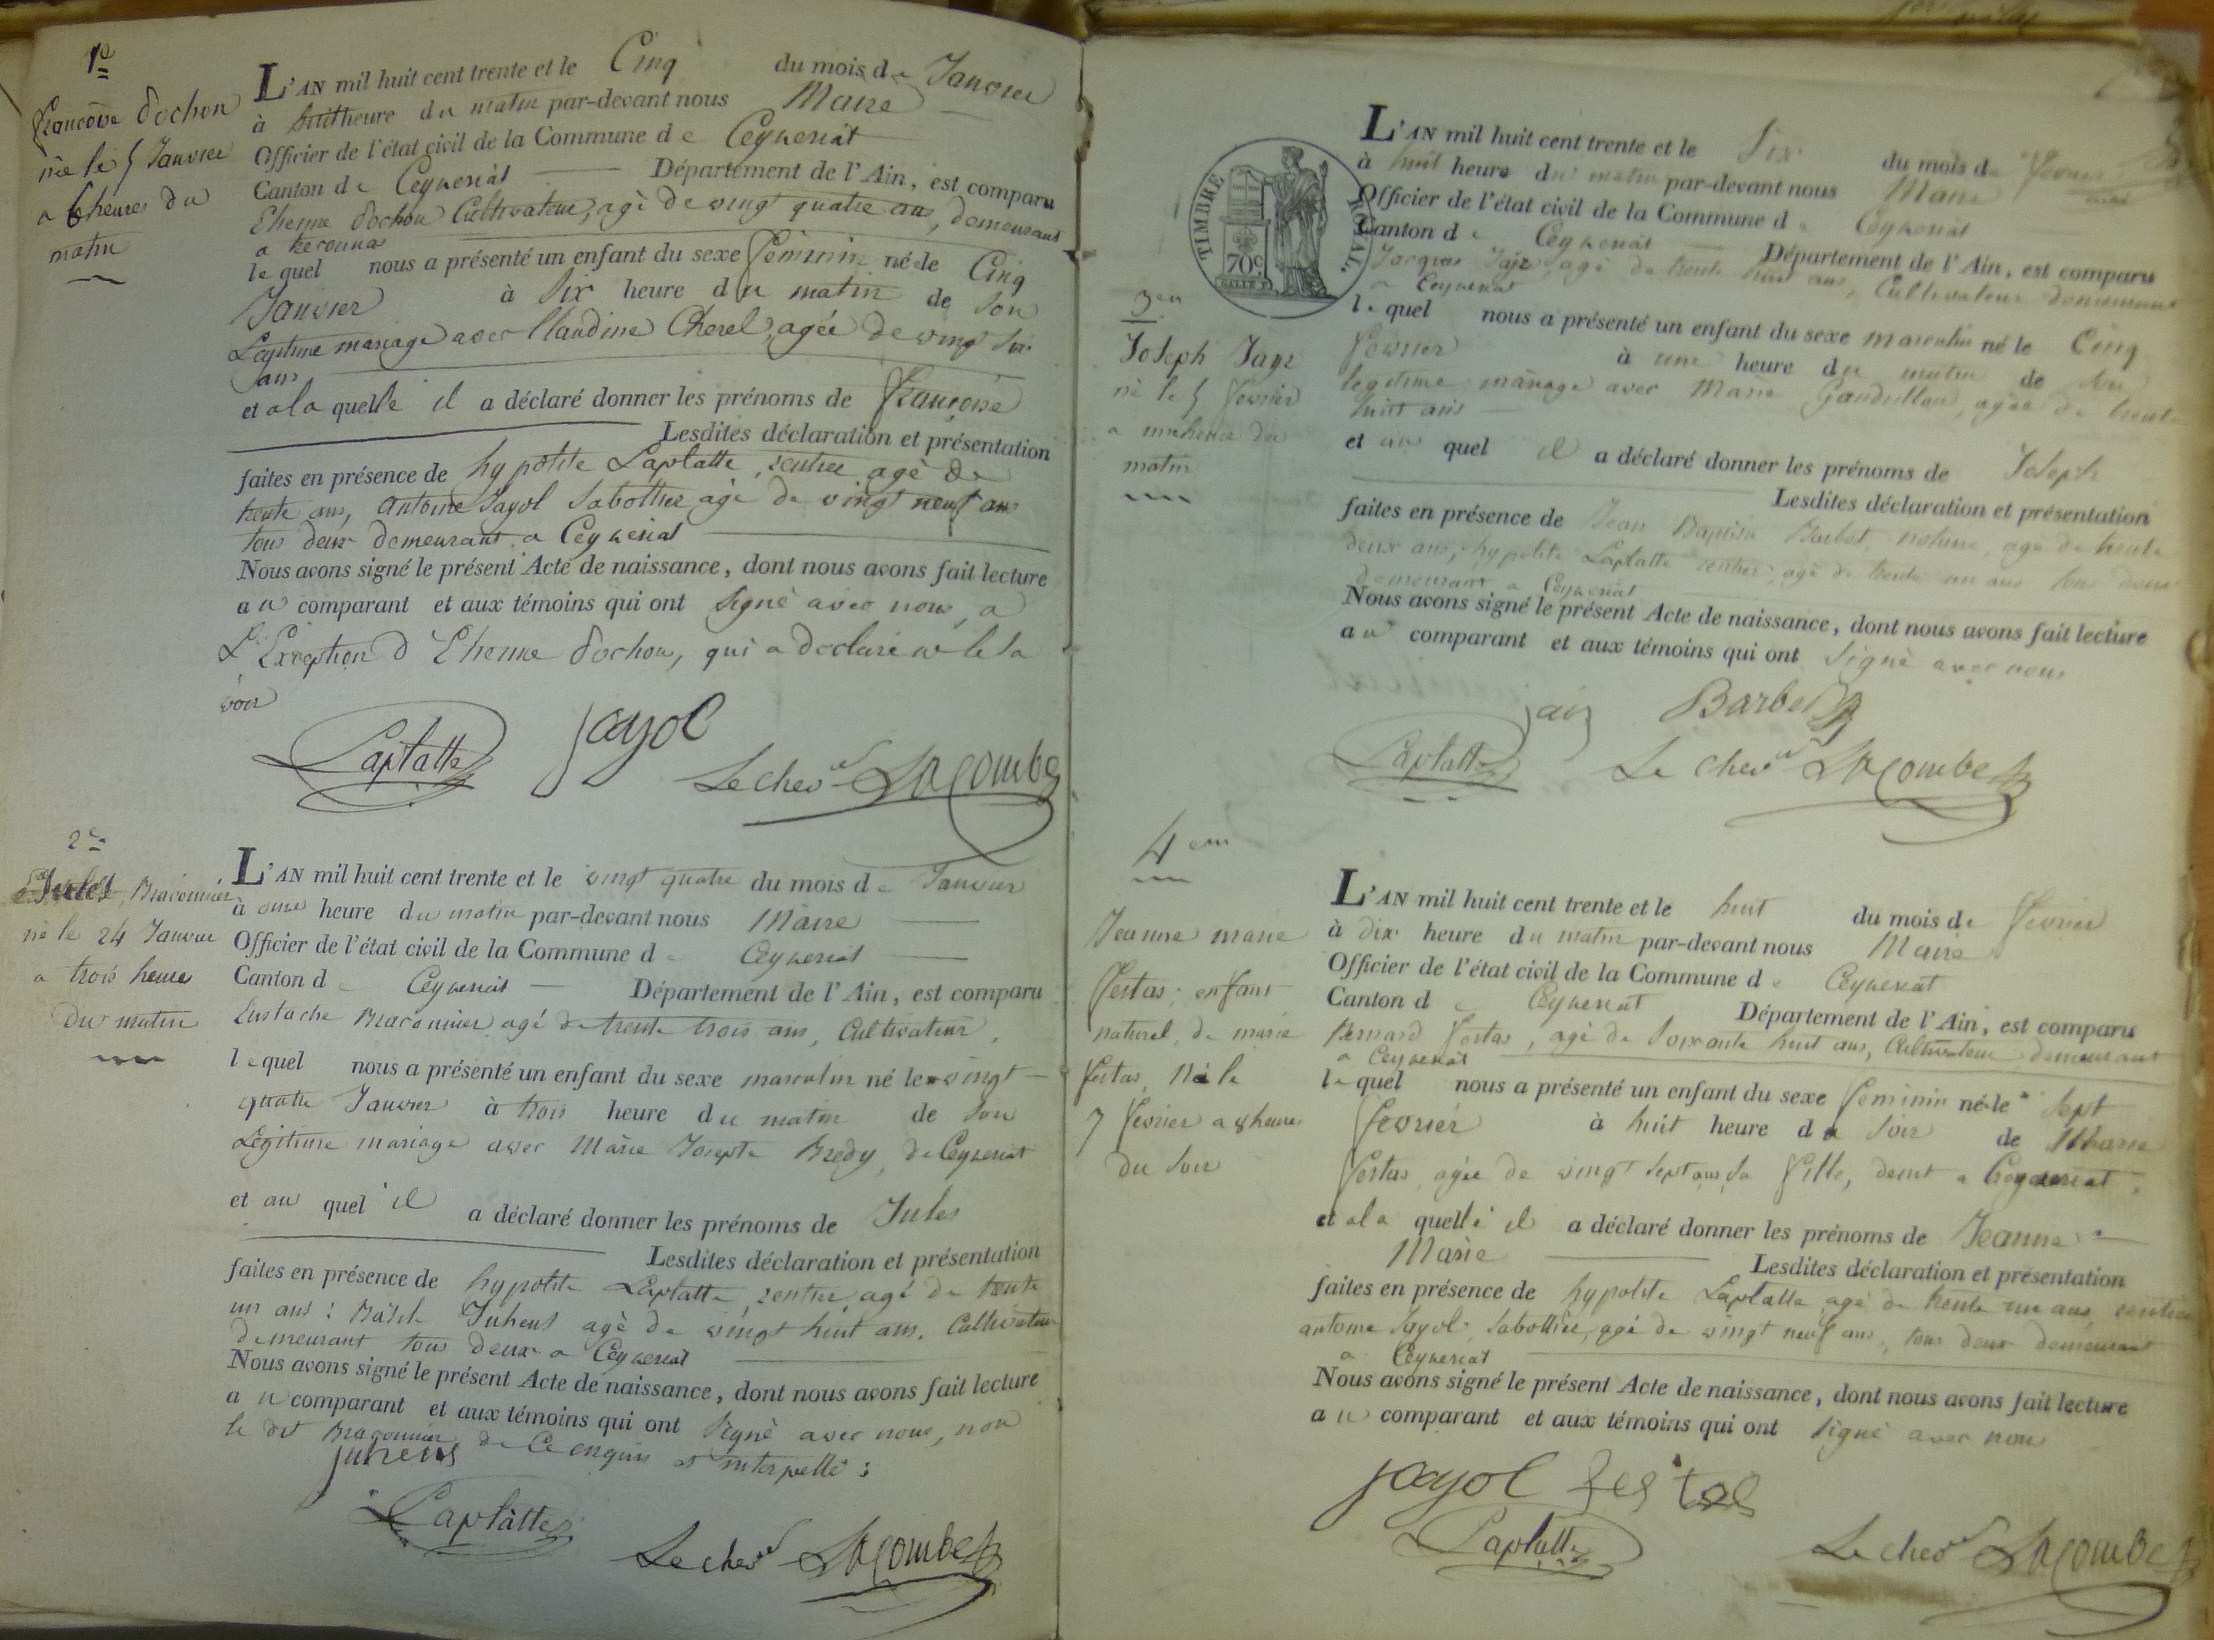 1e
L'AN mil huit cent trente et le Cinq du mois de Janvier
à huit heure du matin par-devant nous Maire
Officier de l'état civil de la Commune de Ceyzeriat
Canton de Ceyzeriat Département de l'Ain, est comparu
Etienne Cultivateur, agé de vingt quatre ans, demeurant
a
lequel nous a présenté un enfant du sexe féminin né le Cinq
Janvier à Six heure du matin de son
Légitime mariage avec Claudine Chorel, agée de vingt six
ans
et a la quelle il a déclaré donner les prénoms de françoise
Lesdites déclaration et présentation
faites en présence de hypolite Laplatte, rentier agé de
trente ans, antoine Jayol Sabottier agé de vingt neuf ans
tous deux demeurant a Ceyzeriat
Nous avons signé le présent Acte de naissance, dont nous avons fait lecture
au comparant et aux témoins qui ont signé avec nous, a
L'Exception d'Etienne qui a declaré ne le sa
voir
Laplatte Jayol
Le chevr Lacombe
françoise
née le 5 Janvier
a 6 heures du
matin
2e
Jules Braconnier
né le 24 Janvier
a trois heures
du matin
L'AN mil huit cent trente et le vingt quatre du mois de Janvier
à onze heure du matin par-devant nous Maire
Officier de l'état civil de la Commune de Ceyzeriat
Canton de Ceyzeriat Département de l'Ain, est comparu
Eustache Braconnier agé de trente trois ans, Cultivateur,
lequel nous a présenté un enfant du sexe masculin né le vingt
quatre Janvier à trois heure du matin de son
Légitime mariage avec Marie Josepte Bredy, de Ceyzeriat
et au quel il a déclaré donner les prénoms de Jules
Lesdites déclaration et présentation
faites en présence de hypolite Laplatte, rentier agé de trente
un ans: Juhens agé de vingt huit ans. Cultivateur
demeurant tous deux a Ceyzeriat
Nous avons signé le présent Acte de naissance, dont nous avons fait lecture
au comparant et aux témoins qui ont signé avec nous, non
le dit Braconnier de Ce enquis et interpellé:
Juhens
Laplatte
Le chevr Lacombe
TIMBRE ROYAL.
70c
3em
Joseph Jayr
né le 5 fevrier
a une heure du
matin
L'AN mil huit cent trente et le Six du mois de fevrier
à huit heure du matin par-devant nous Maire
Officier de l'état civil de la Commune de Ceyzeriat
Canton de Ceyzeriat Département de l'Ain, est comparu
Jacques Jayr, agé de trente huit ans, Cultivateur demeurant
a Ceyzeriat
lequel nous a présenté un enfant du sexe masculin né le Cinq
fevrier à une heure du matin de son
legitime mariage avec Marie agée de trente
huit ans
et au quel il a déclaré donner les prénoms de Joseph
Lesdites déclaration et présentation
faites en présence de Jean Baptiste Barbet, notaire, agé de trente
deux ans, hypolite Laplatte rentier, agé de trente un ans tous deux
demeurant a Ceyzeriat
Nous avons signé le présent Acte de naissance, dont nous avons fait lecture
au comparant et aux témoins qui ont signé avec nous
Barbet
Laplatte Le chevr Lacombe
4em
Jeanne marie
festas, enfant
naturel de marie
festas, Née le
7 fevrier a 8 heures
du soir
L'AN mil huit cent trente et le huit du mois de fevrier
à dix heure du matin par-devant nous Maire
Officier de l'état civil de la Commune de Ceyzeriat
Canton de Ceyzeriat Département de l'Ain, est comparu
Bernard festas, agé de Soixante huit ans, Cultivateur demeurant
a Ceyzeriat
lequel nous a présenté un enfant du sexe feminin né le Sept
fevrier à huit heure du soir de Marie
festas, agée de vingt sept ans, sa fille, demt a Ceyzeriat,
et a la quelle il a déclaré donner les prénoms de Jeanne
Marie Lesdites déclaration et présentation
faites en présence de hypolite Laplatte agé de trente un ans, rentier
antoine Jayol, Sabottier, agé de vingt neuf ans, tous deux demeurant
a Ceyzeriat
Nous avons signé le présent Acte de naissance, dont nous avons fait lecture
au comparant et aux témoins qui ont signé avec nous
Jayol festas
Laplatte
Le chevr Lacombe